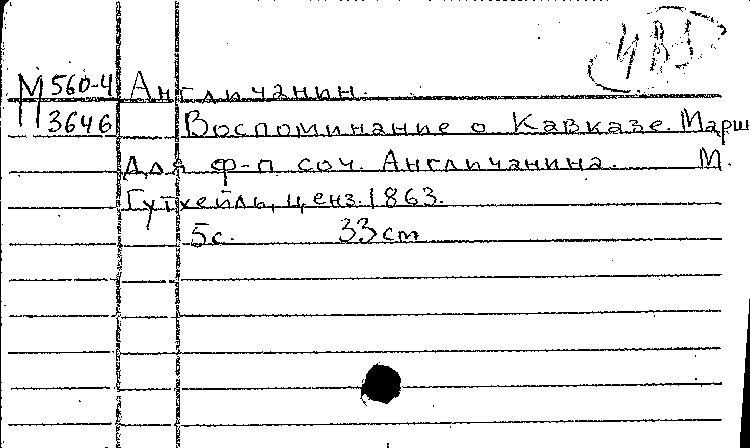 М 560-4 Англичанин.
3646 Воспоминание о Кавказе. Марш
для ф-п соч. Англичанина. М.
Гутхейль, ценз. 1863.
5с. 33 cm